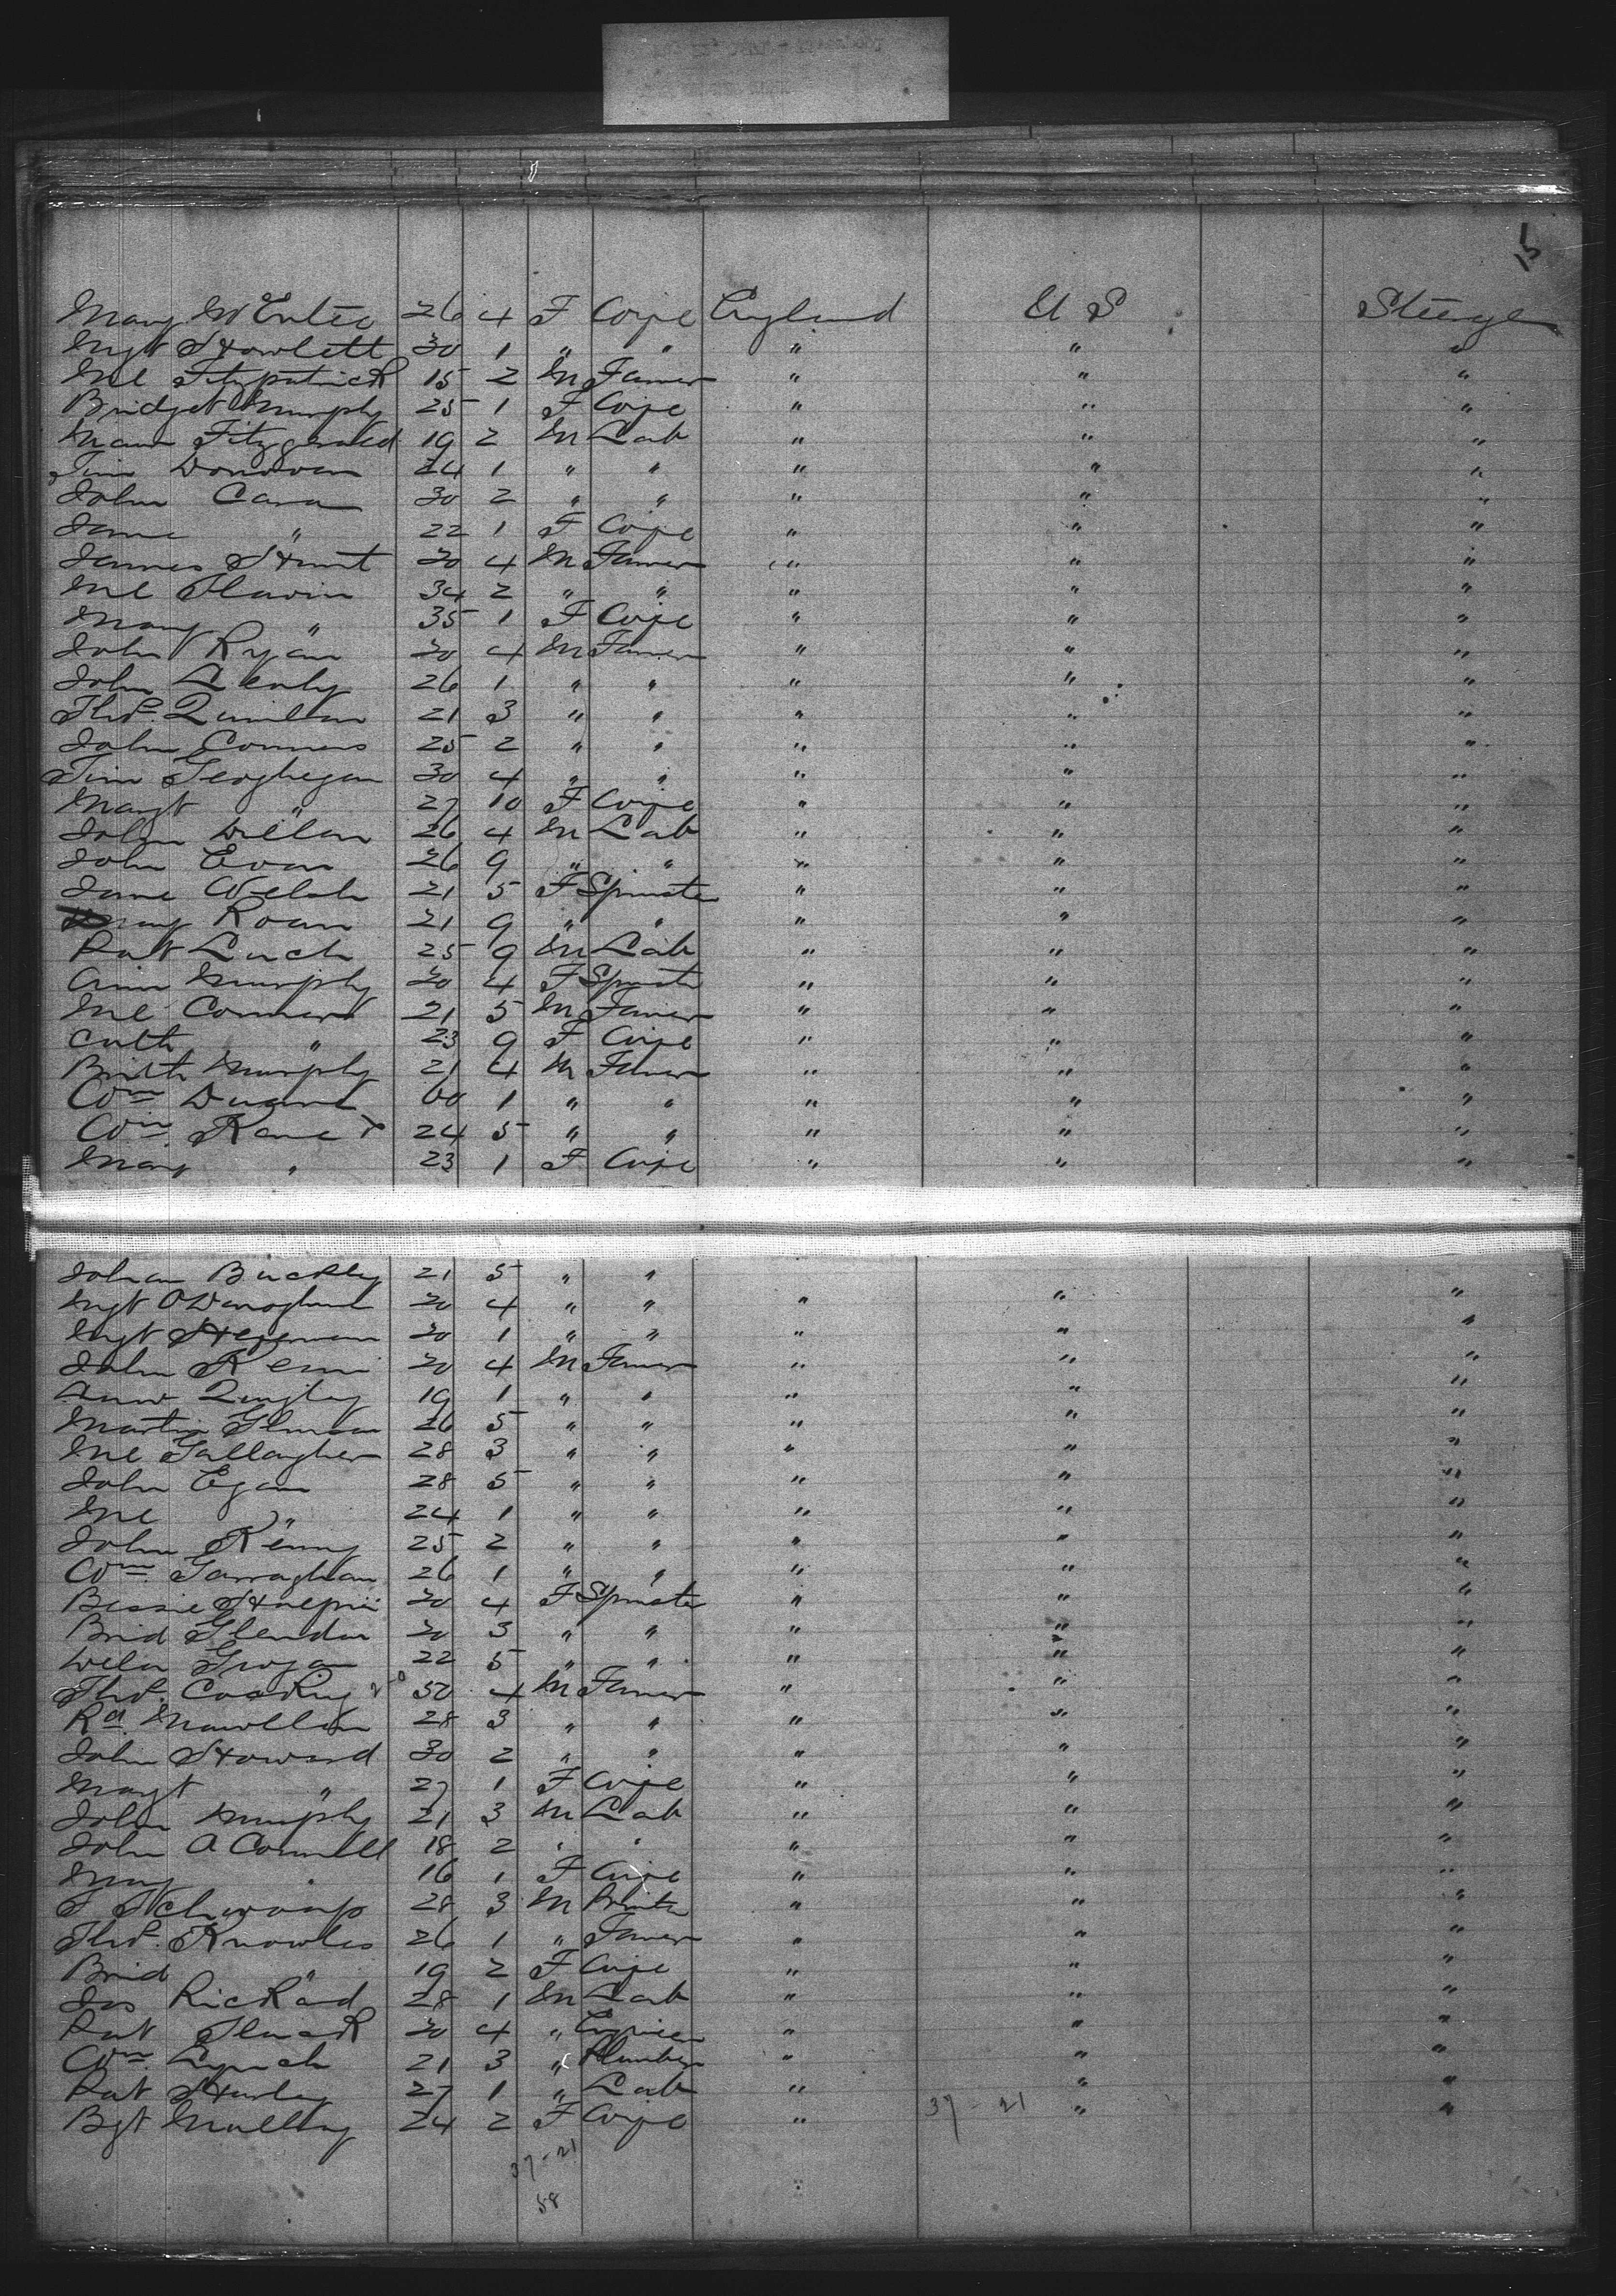 5
Mary McEntee 26 4 F Wife England U S Steerage
Mgt Howlett 30 1 " " " " "
Ml Fitzpatrick 15 2 M Farmer " " "
Bridget Murphy 25 1 F Wife " " "
Maur Fitzgerald 19 2 M Lab " " "
Tim Donovan 24 1 " " " " "
John Cara 30 2 " " " " "
Jane " 22 1 F Wife " " "
James Hunt 20 4 M Farmer " " "
Ml Flavin 34 2 " " " " "
Mary " 35 1 F Wife " " "
John Ryan 20 4 M Farmer " " "
John 26 1 " " " " "
Thos. Quinlan 21 3 " " " " "
John Connors 25 2 " " " " "
Tim Geoghegan 30 4 " " " " "
Margt " 27 10 F Wife " " "
John Dillon 26 4 M Lab " " "
John Evan 26 9 " " " " "
Jane Welsh 21 5 F Spinster " " "
Mary Roan 21 9 " " " " "
Pat 25 9 M Lab " " "
Ann Murphy 20 4 F Spinster " " "
Ml Connors 21 5 M Farmer " " "
Cath " 23 9 F Wife " " "
Murphy 21 4 M Farmer " " "
Wm Duane 60 1 " " " " "
Wm. Kane 24 5 " " " " "
Mary " 23 1 F Wife " " "
Buckley 21 5 " " "
Mgt O'Donoghue 20 4 " " " " "
Mgt Heffernan 20 1 " " " " "
John 20 4 M Farmer " " "
Quigley 19 1 " " " " "
Martin 26 5 " " " " "
Ml Gallagher 28 3 " " " " "
John Egan 28 5 " " " " "
Ml " 24 1 " " " " "
John Kenny 25 2 " " " " "
Wm. Garraghan 26 1 " " " " "
Bessie 20 4 F Spinster " " "
Brid Glendon 20 3 " " " " "
Delia Grogan 22 5 " " " " "
Thos. 50 4 M Farmer " " "
Rd. 28 3 " " " " "
John Howard 30 2 " " " " "
Margt " 27 1 F Wife " " "
John Murphy 21 3 M Lab " " "
John O Connell 18 2 " " " " "
Mary " 16 1 F Wife " " "
28 3 M Printer " " "
Thos. Knowles 26 1 " Farmer " " "
Brid " 19 2 F Wife " " "
Jas Rickard 28 1 M Lab " " "
Pat 20 4 " " " "
Wm. Lynch 21 3 " Plumber " " "
Pat Hurley 27 1 " Lab " " "
Bgt Mullany 24 2 F Wife " 37 - 21 " "
37-21
58